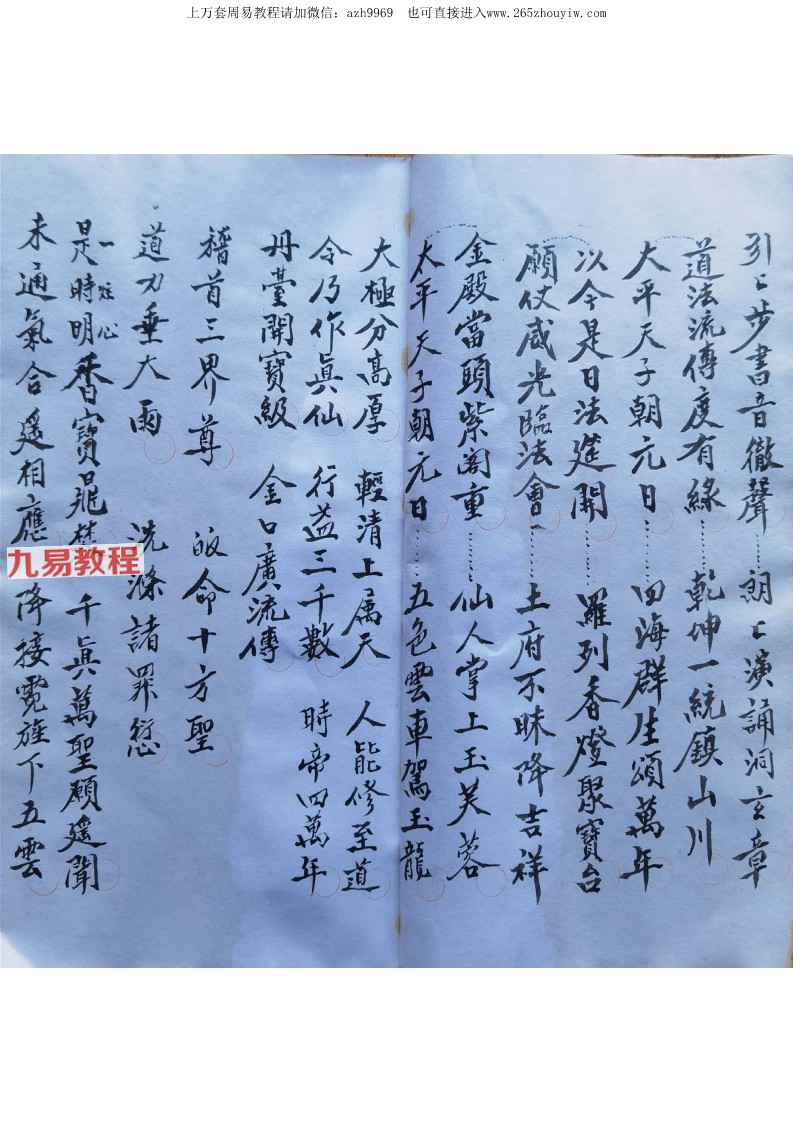 上万套周易教程请加微信：azh9969　也可直接进入www.265zhouyiw.com
引〻步書音徹聲……朗〻演誦洞玄章
道法流傳度有緣……乾坤一統鎮山川
大平天子朝元日……四海群生頌萬年
以今是日法筵開……羅列香燈聚寶台
願仗威光臨法會……土府不昧降吉祥
金殿當頭紫阁重……仙人掌上玉芙蓉
太平天子朝元日……五色雲車駕玉龍
大極分高厚　輕清上属天　人能修至道
令乃作眞仙　行益三千數　時帝四萬年
丹臺開寶級　金口廣流傳
稽首三界尊　皈命十方聖
道力垂大雨　洗滌諸罪愆
一炷心
是時明香寶鼎　千眞萬聖願遥聞
未通氣合遥相應　降接霓旌下五雲
九易教程